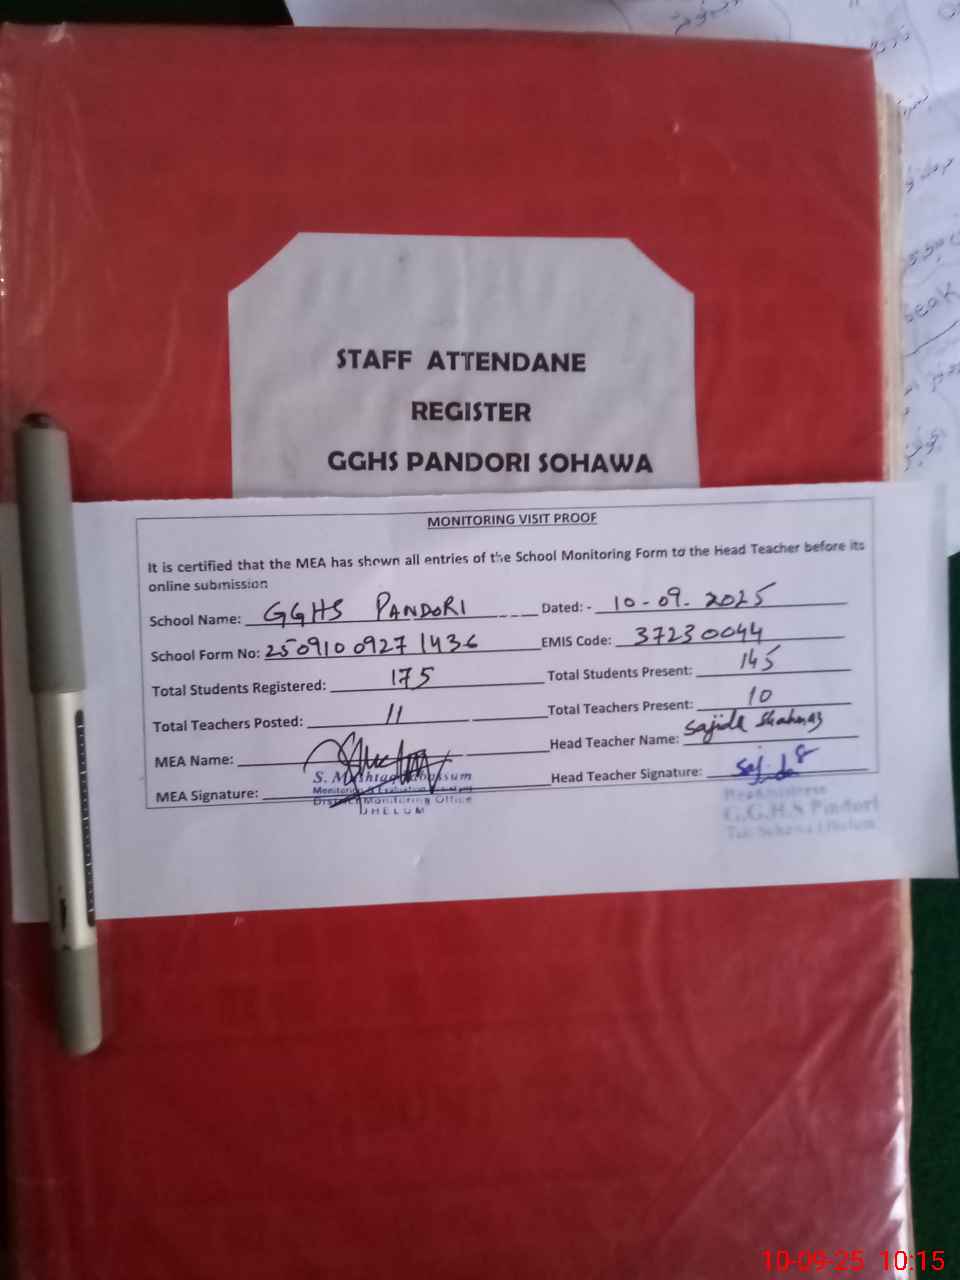 STAFF ATTENDANE
REGISTER
GGHS PANDORI SOHAWA
MONITORING VISIT PROOF
It is certified that the MEA has shown all entries of the School Monitoring Form to the Head Teacher before its
online submission
School Name: GGHS PANDORI Dated: - 10-09-2025
School Form No: 250910 0927 1436 EMIS Code: 37230044
Total Students Registered: 175 Total Students Present: 145
Total Teachers Posted: 11 Total Teachers Present: 10
MEA Name: Head Teacher Name: Sajida Shahnaz
MEA Signature: Head Teacher Signature: Sajida
S. Mushtaq Tabassum
Monitoring & Evaluation
District Monitoring Office
JHELUM
Headmistress
G.G.H.S Pindori
Teh: Sohawa (Jhelum
10-09-25 10:15